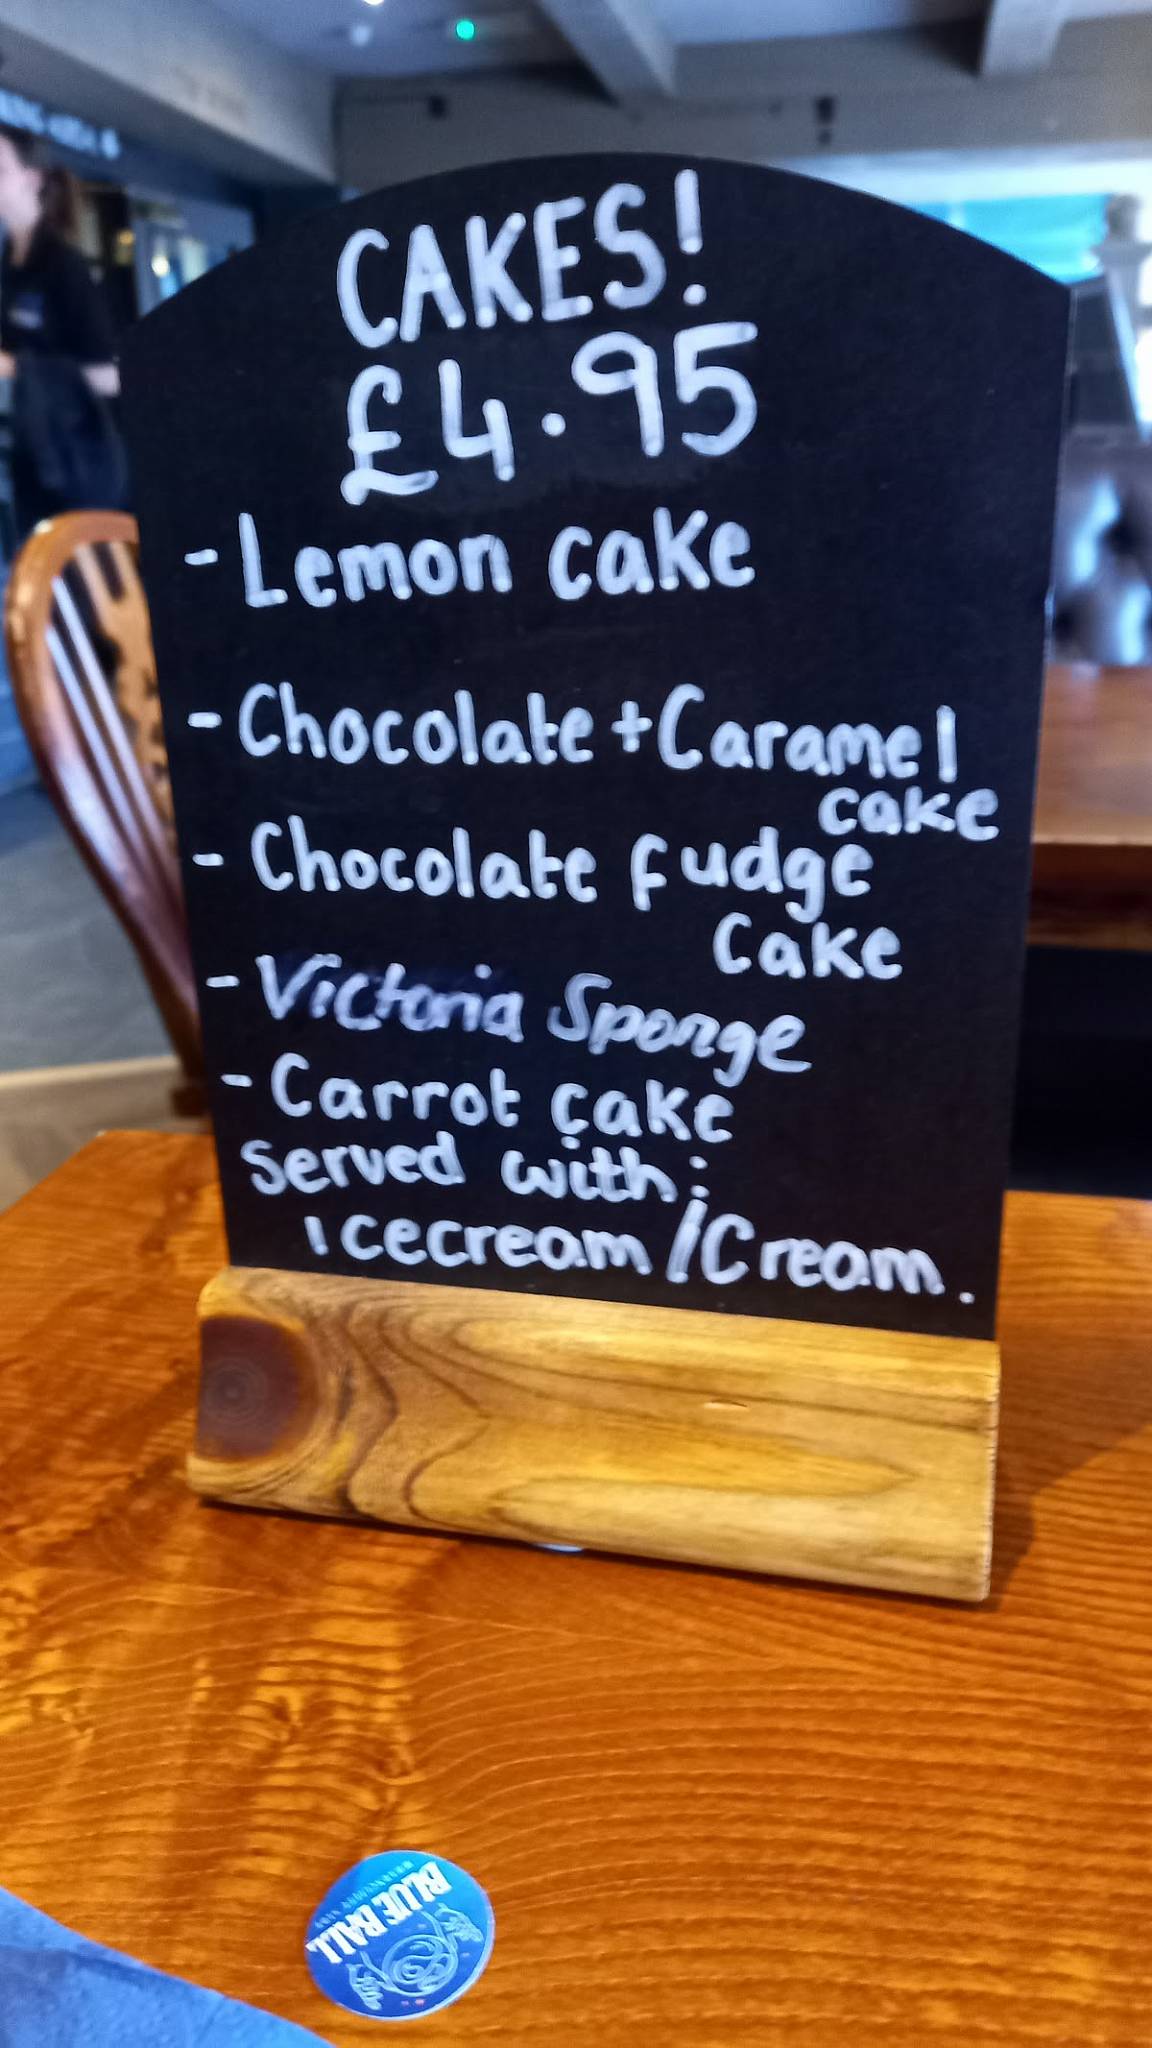 CAKES!
£4.95
- Lemon cake
- Chocolate + Caramel
cake
- Chocolate fudge
Cake
- Victoria Sponge
- Carrot cake
Served with:
icecream / Cream.
BLUE BALL